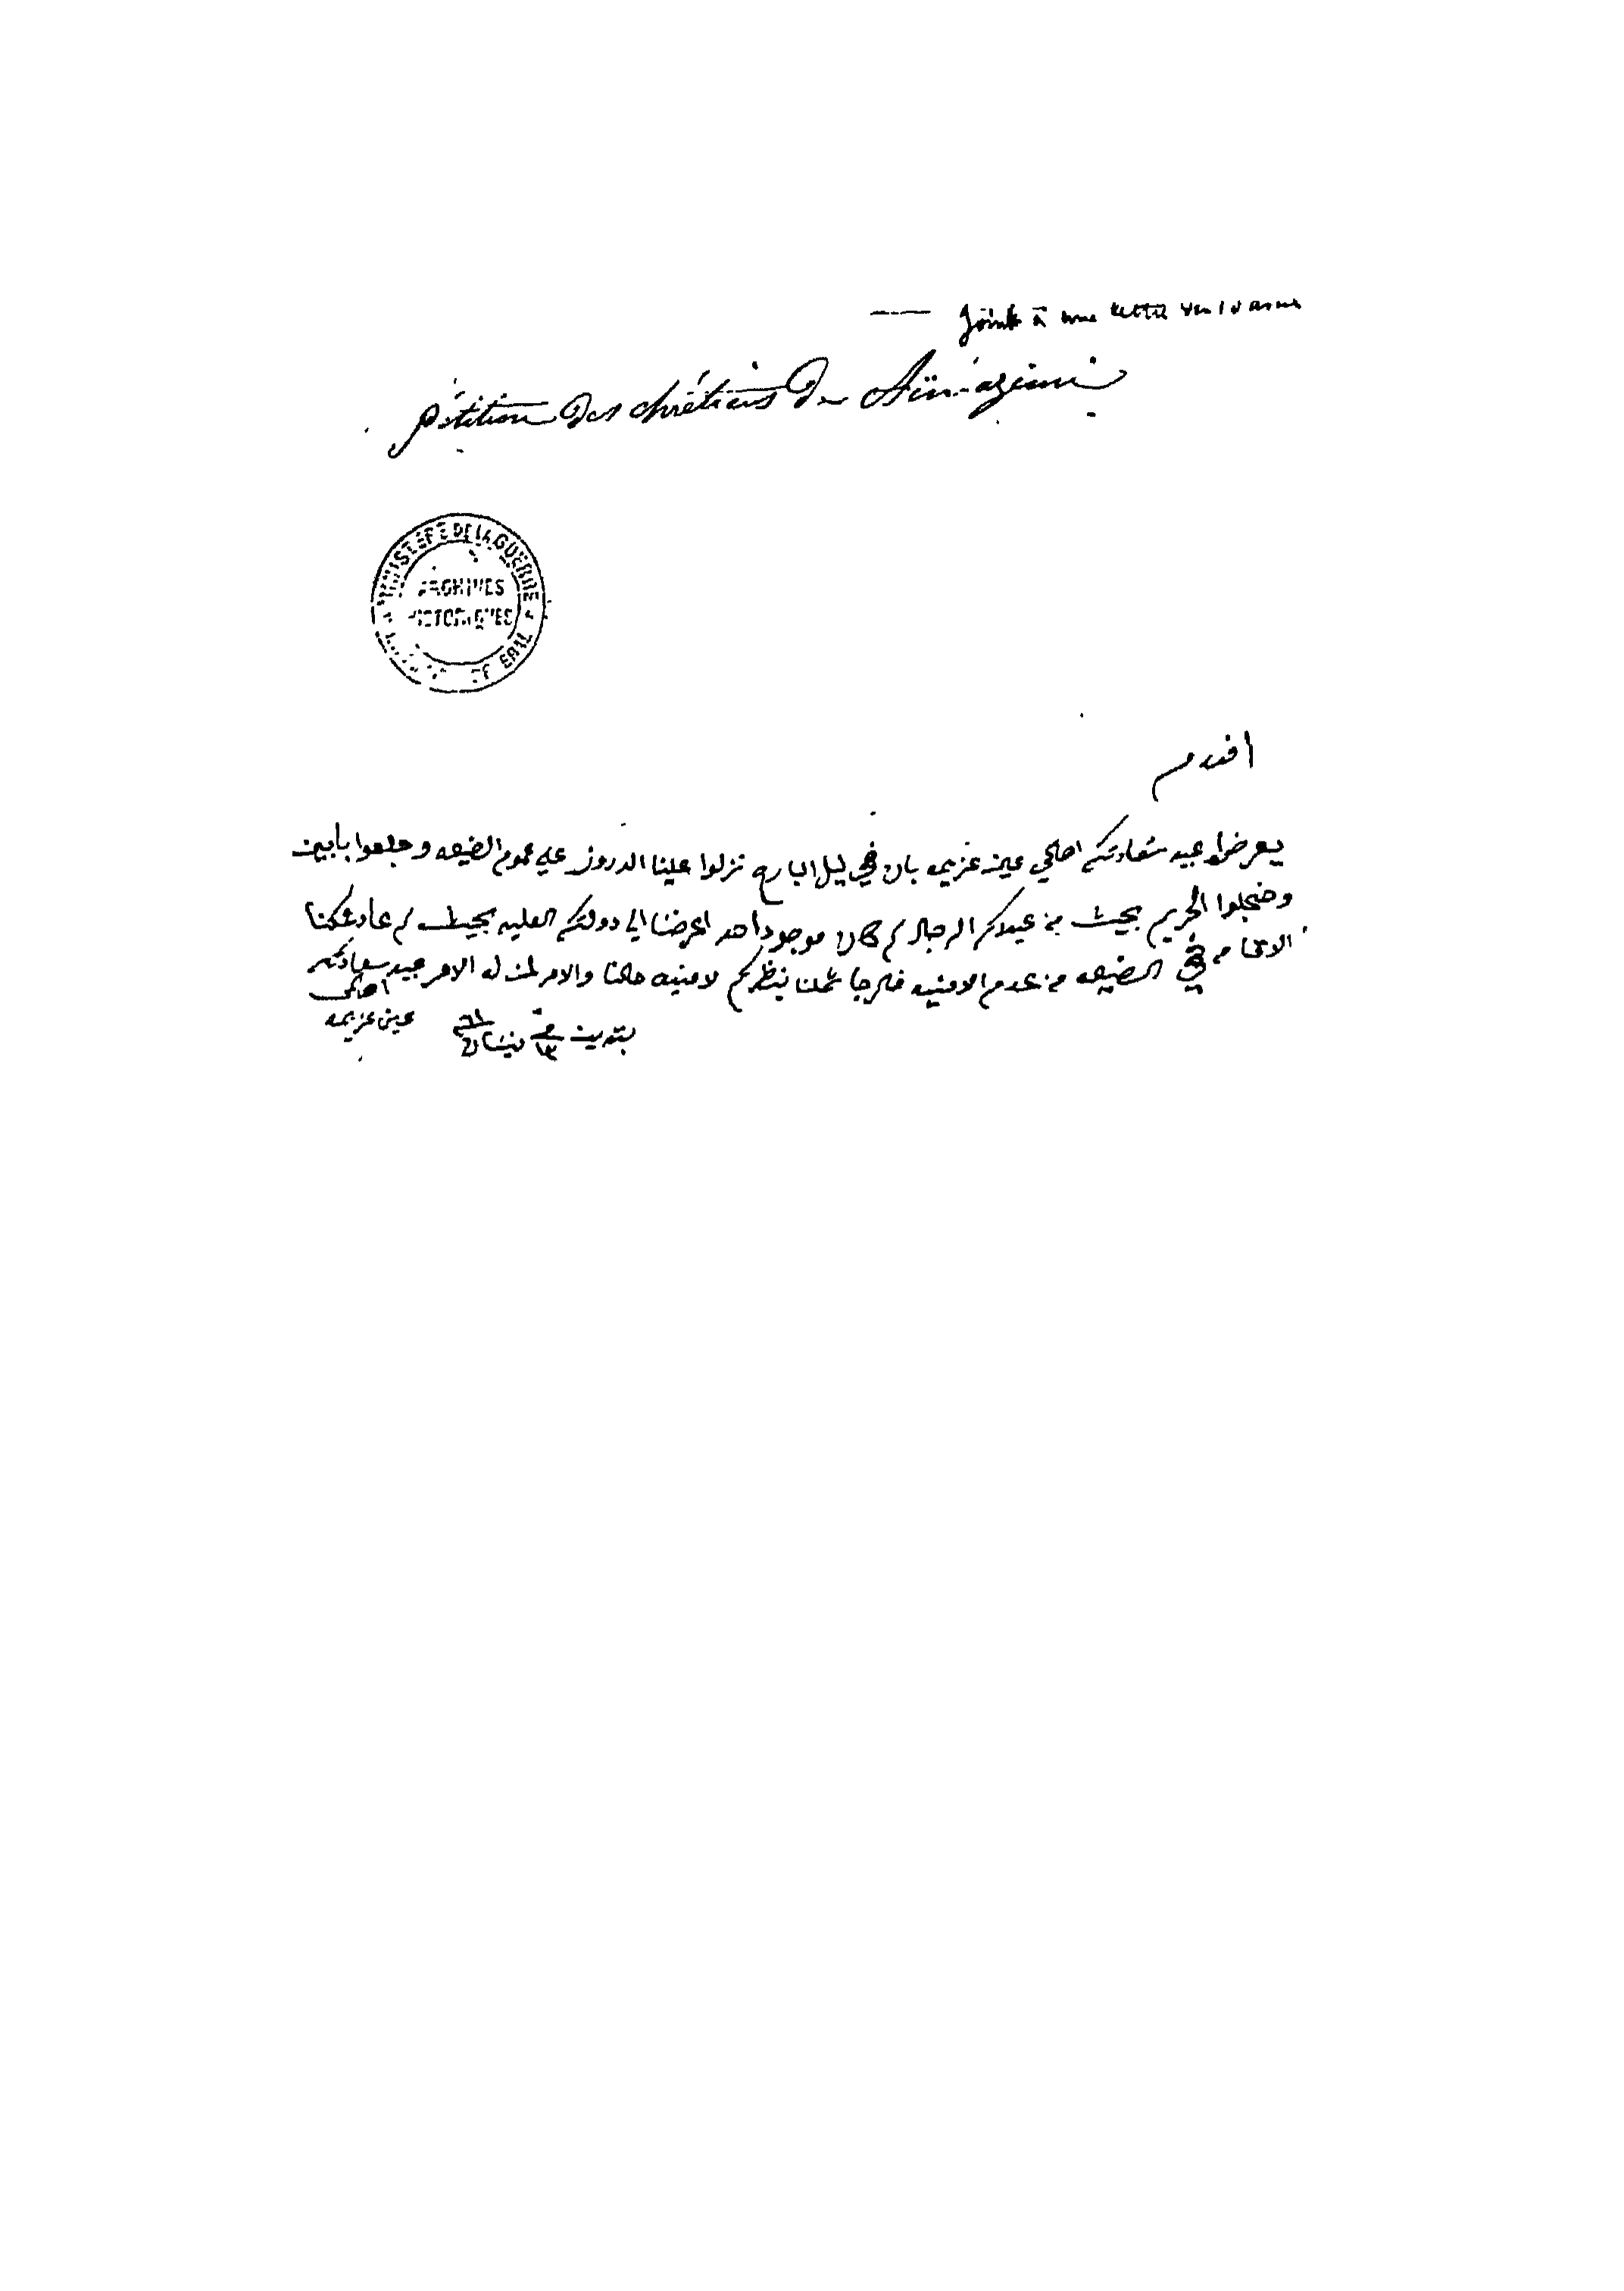 Joint à une lettre du 10 avril
Pétition des chrétiens de Aïn-azimi
MINISTÈRE DE LA GUERRE
ARCHIVES
HISTORIQUES
افندم
يعرضوا عبيد سعادتكم اهالي عين عزيمه بان في ليل البارح نزلوا علينا الدروز علي عموم الضيعه وخلعوا بابين
وخجلوا الحريم بحيث من عبيدكم الرجال لم كان موجود احد اعرضنا الي دولتكم العليه بحيث لم عاد يمكنا
الاقامه في الضيعه من عدم الامنيه فنرجا حسن بنظركم لامنيه حالنا والامر لمن له الامر عبيد سعادتكم
اهالي
بتدين في ١٣ نيسان ٦١ عين عزيمه